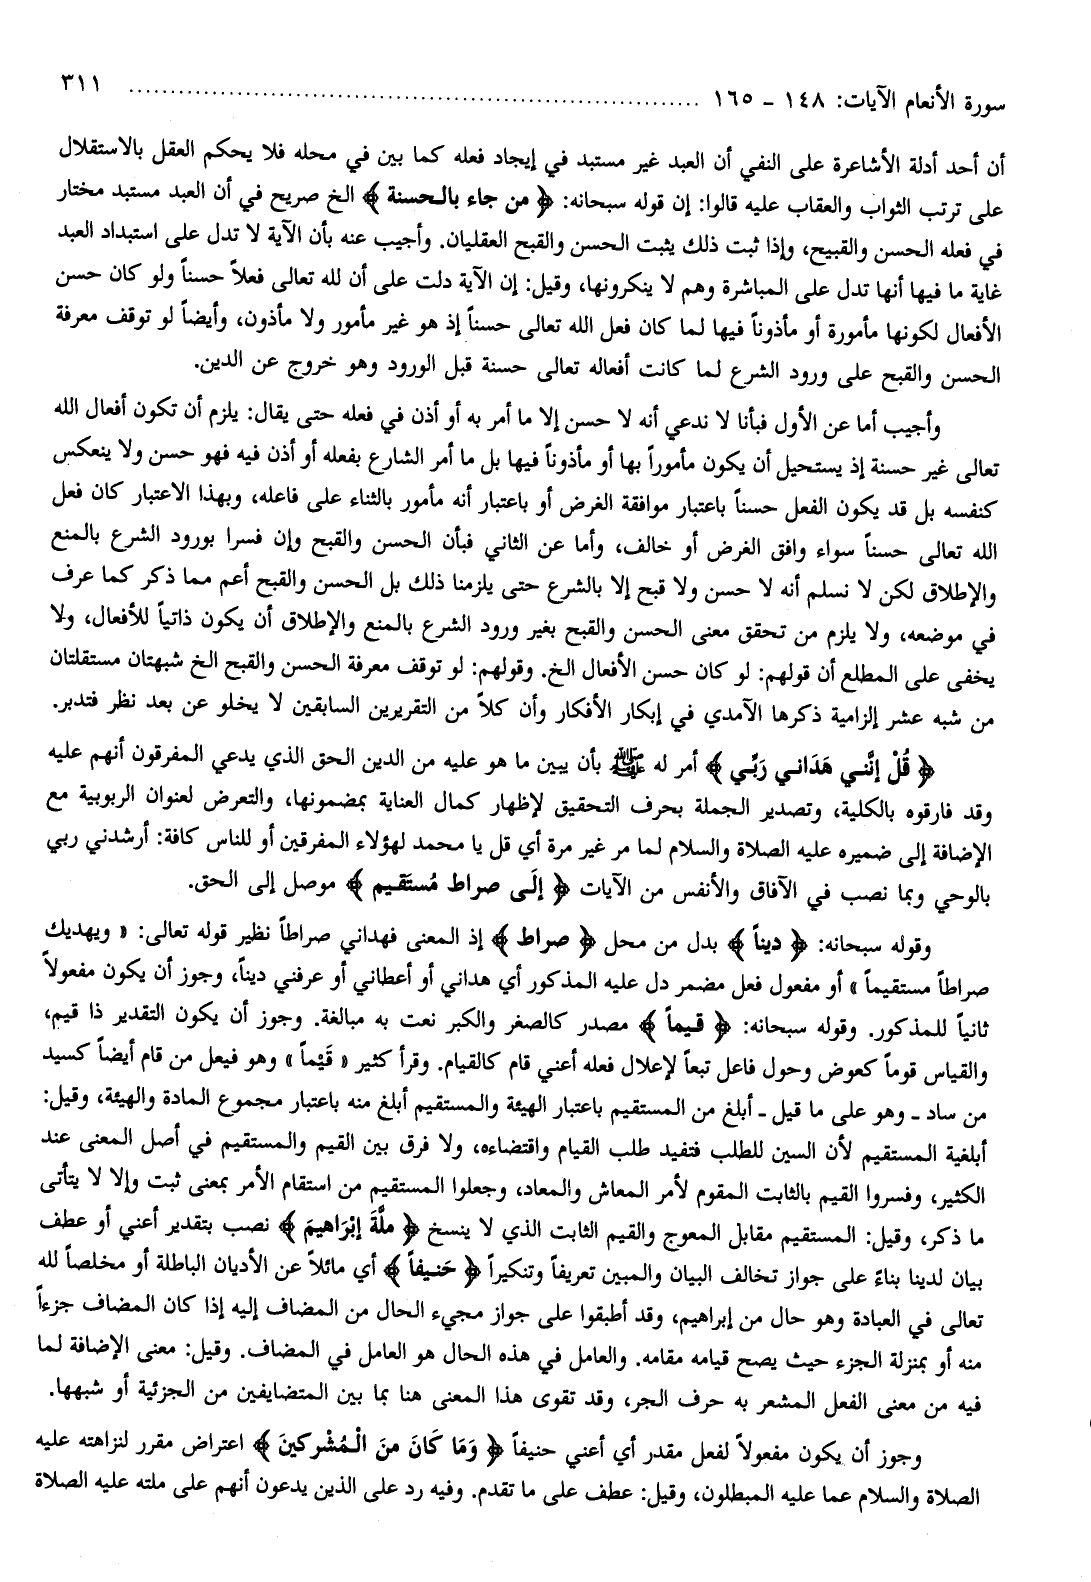 سورة الأنعام الآيات: ١٤٨ - ١٦٥ ........................................ ٣١١
أن أحد أدلة الأشاعرة على النفي أن العبد غير مستبد في إيجاد فعله كما بين في محله فلا يحكم العقل بالاستقلال
على ترتب الثواب والعقاب عليه قالوا: إن قوله سبحانه: ﴿ من جاء بالحسنة ﴾ الخ صريح في أن العبد مستبد مختار
في فعله الحسن والقبيح، وإذا ثبت ذلك يثبت الحسن والقبح العقليان. وأجيب عنه بأن الآية لا تدل على استبداد العبد
غاية ما فيها أنها تدل على المباشرة وهم لا ينكرونها، وقيل: إن الآية دلت على أن لله تعالى فعلاً حسناً ولو كان حسن
الأفعال لكونها مأمورة أو مأذوناً فيها لما كان فعل الله تعالى حسناً إذ هو غير مأمور ولا مأذون، وأيضاً لو توقف معرفة
الحسن والقبح على ورود الشرع لما كانت أفعاله تعالى حسنة قبل الورود وهو خروج عن الدين.
وأجيب أما عن الأول فبأنا لا ندعي أنه لا حسن إلا ما أمر به أو أذن في فعله حتى يقال: يلزم أن تكون أفعال الله
تعالى غير حسنة إذ يستحيل أن يكون مأموراً بها أو مأذوناً فيها بل ما أمر الشارع بفعله أو أذن فيه فهو حسن ولا ينعكس
كنفسه بل قد يكون الفعل حسناً باعتبار موافقة الغرض أو باعتبار أنه مأمور بالثناء على فاعله، وبهذا الاعتبار كان فعل
الله تعالى حسناً سواء وافق الغرض أو خالف، وأما عن الثاني فبأن الحسن والقبح وإن فسرا بورود الشرع بالمنع
والإطلاق لكن لا نسلم أنه لا حسن ولا قبح إلا بالشرع حتى يلزمنا ذلك بل الحسن والقبح أعم مما ذكر كما عرف
في موضعه، ولا يلزم من تحقق معنى الحسن والقبح بغير ورود الشرع بالمنع والإطلاق أن يكون ذاتياً للأفعال، ولا
يخفى على المطلع أن قولهم: لو كان حسن الأفعال الخ. وقولهم: لو توقف معرفة الحسن والقبح الخ شبهتان مستقلتان
من شبه عشر إلزامية ذكرها الآمدي في إبكار الأفكار وأن كلاً من التقريرين السابقين لا يخلو عن بعد نظر فتدبر.
﴿ قُلْ إنَّني هَدَاني رَبِّي ﴾ أمر له ﷺ بأن يبين ما هو عليه من الدين الحق الذي يدعي المفرقون أنهم عليه
وقد فارقوه بالكلية، وتصدير الجملة بحرف التحقيق لإظهار كمال العناية بمضمونها، والتعرض لعنوان الربوبية مع
الإضافة إلى ضميره عليه الصلاة والسلام لما مر غير مرة أي قل يا محمد لهؤلاء المفرقين أو للناس كافة: أرشدني ربي
بالوحي وبما نصب في الآفاق والأنفس من الآيات ﴿ إلَى صراط مُستَقيم ﴾ موصل إلى الحق.
وقوله سبحانه: ﴿ ديناً ﴾ بدل من محل ﴿ صراط ﴾ إذ المعنى فهداني صراطاً نظير قوله تعالى: « ويهديك
صراطاً مستقيماً » أو مفعول فعل مضمر دل عليه المذكور أي هداني أو أعطاني أو عرفني ديناً، وجوز أن يكون مفعولاً
ثانياً للمذكور. وقوله سبحانه: ﴿ قيماً ﴾ مصدر كالصغر والكبر نعت به مبالغة. وجوز أن يكون التقدير ذا قيم،
والقياس قوماً كعوض وحول فاعل تبعاً لإعلال فعله أعني قام كالقيام. وقرأ كثير « قَيِّماً » وهو فيعل من قام أيضاً كسيد
من ساد ـ وهو على ما قيل ـ أبلغ من المستقيم باعتبار الهيئة والمستقيم أبلغ منه باعتبار مجموع المادة والهيئة، وقيل:
أبلغية المستقيم لأن السين للطلب فتفيد طلب القيام واقتضاءه، ولا فرق بين القيم والمستقيم في أصل المعنى عند
الكثير، وفسروا القيم بالثابت المقوم لأمر المعاش والمعاد، وجعلوا المستقيم من استقام الأمر بمعنى ثبت وإلا لا يتأتى
ما ذكر، وقيل: المستقيم مقابل المعوج والقيم الثابت الذي لا ينسخ ﴿ ملَّةَ إبْرَاهيمَ ﴾ نصب بتقدير أعني أو عطف
بيان لدينا بناءً على جواز تخالف البيان والمبين تعريفاً وتنكيراً ﴿ حَنيفاً ﴾ أي مائلاً عن الأديان الباطلة أو مخلصاً لله
تعالى في العبادة وهو حال من إبراهيم، وقد أطبقوا على جواز مجيء الحال من المضاف إليه إذا كان المضاف جزءاً
منه أو بمنزلة الجزء حيث يصح قيامه مقامه. والعامل في هذه الحال هو العامل في المضاف. وقيل: معنى الإضافة لما
فيه من معنى الفعل المشعر به حرف الجر، وقد تقوى هذا المعنى هنا بما بين المتضايفين من الجزئية أو شبهها.
وجوز أن يكون مفعولاً لفعل مقدر أي أعني حنيفاً ﴿ وَمَا كَانَ منَ الْمُشْركينَ ﴾ اعتراض مقرر لنزاهته عليه
الصلاة والسلام عما عليه المبطلون، وقيل: عطف على ما تقدم. وفيه رد على الذين يدعون أنهم على ملته عليه الصلاة